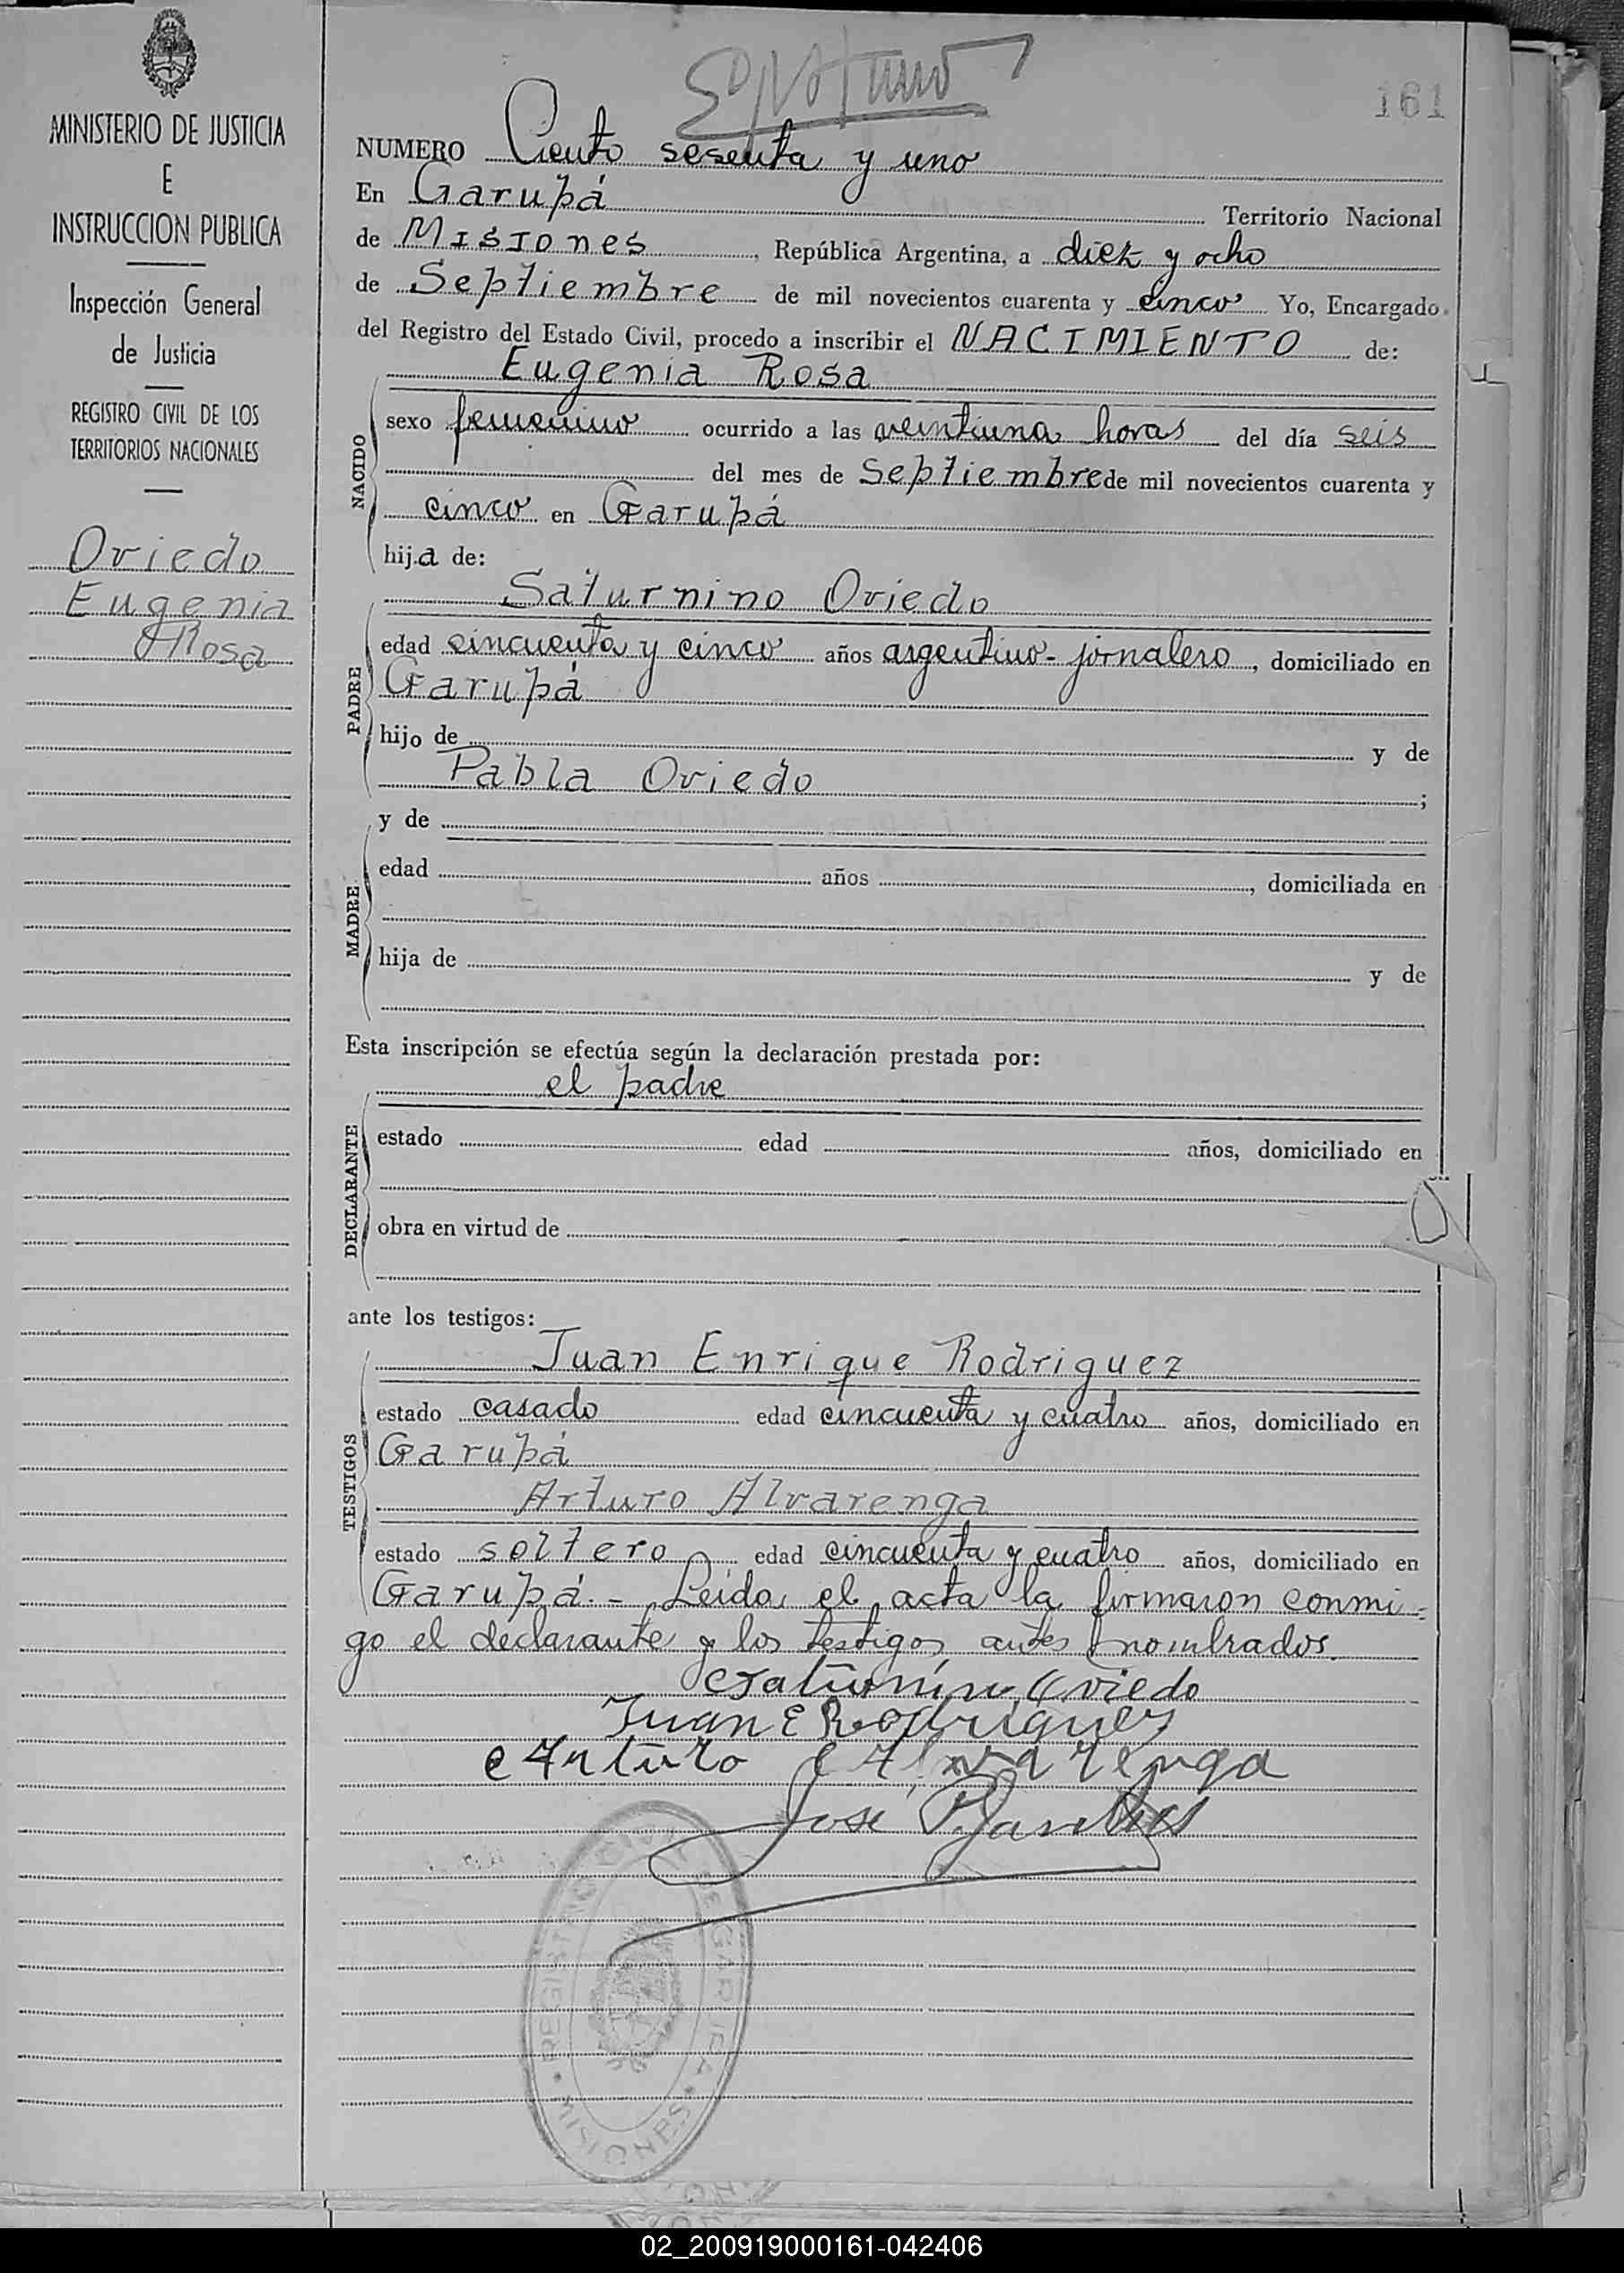 MINISTERIO DE JUSTICIA
E
INSTRUCCION PUBLICA
Inspección General
de Justicia
REGISTRO CIVIL DE LOS
TERRITORIOS NACIONALES
Oviedo
Eugenia
Rosa
161
NUMERO Ciento sesenta y uno
En Garupá Territorio Nacional
de Misiones, República Argentina, a diez y ocho
de Septiembre de mil novecientos cuarenta y cinco Yo, Encargado
del Registro del Estado Civil, procedo a inscribir el NACIMIENTO de:
Eugenia Rosa
NACIDO
sexo femenino ocurrido a las veintiuna horas del día seis
del mes de Septiembre de mil novecientos cuarenta y
cinco en Garupá
hija de:
Saturnino Oviedo
PADRE
edad cincuenta y cinco años argentino - jornalero, domiciliado en
Garupá
hijo de y de
Pabla Oviedo ;
y de
MADRE
edad años , domiciliada en
hija de y de
Esta inscripción se efectúa según la declaración prestada por:
el padre
DECLARANTE
estado edad años, domiciliado en
obra en virtud de
ante los testigos:
Juan Enrique Rodriguez
TESTIGOS
estado casado edad cincuenta y cuatro años, domiciliado en
Garupá
Arturo Alvarenga
estado soltero edad cincuenta y cuatro años, domiciliado en
Garupá. - Leida el acta la firmaron conmi-
go el declarante y los testigos antes nombrados.
Saturnino Oviedo
Juan E Rodriguez
Arturo Alvarenga
José
REGISTRO CIVIL
MISIONES
02_200919000161-042406